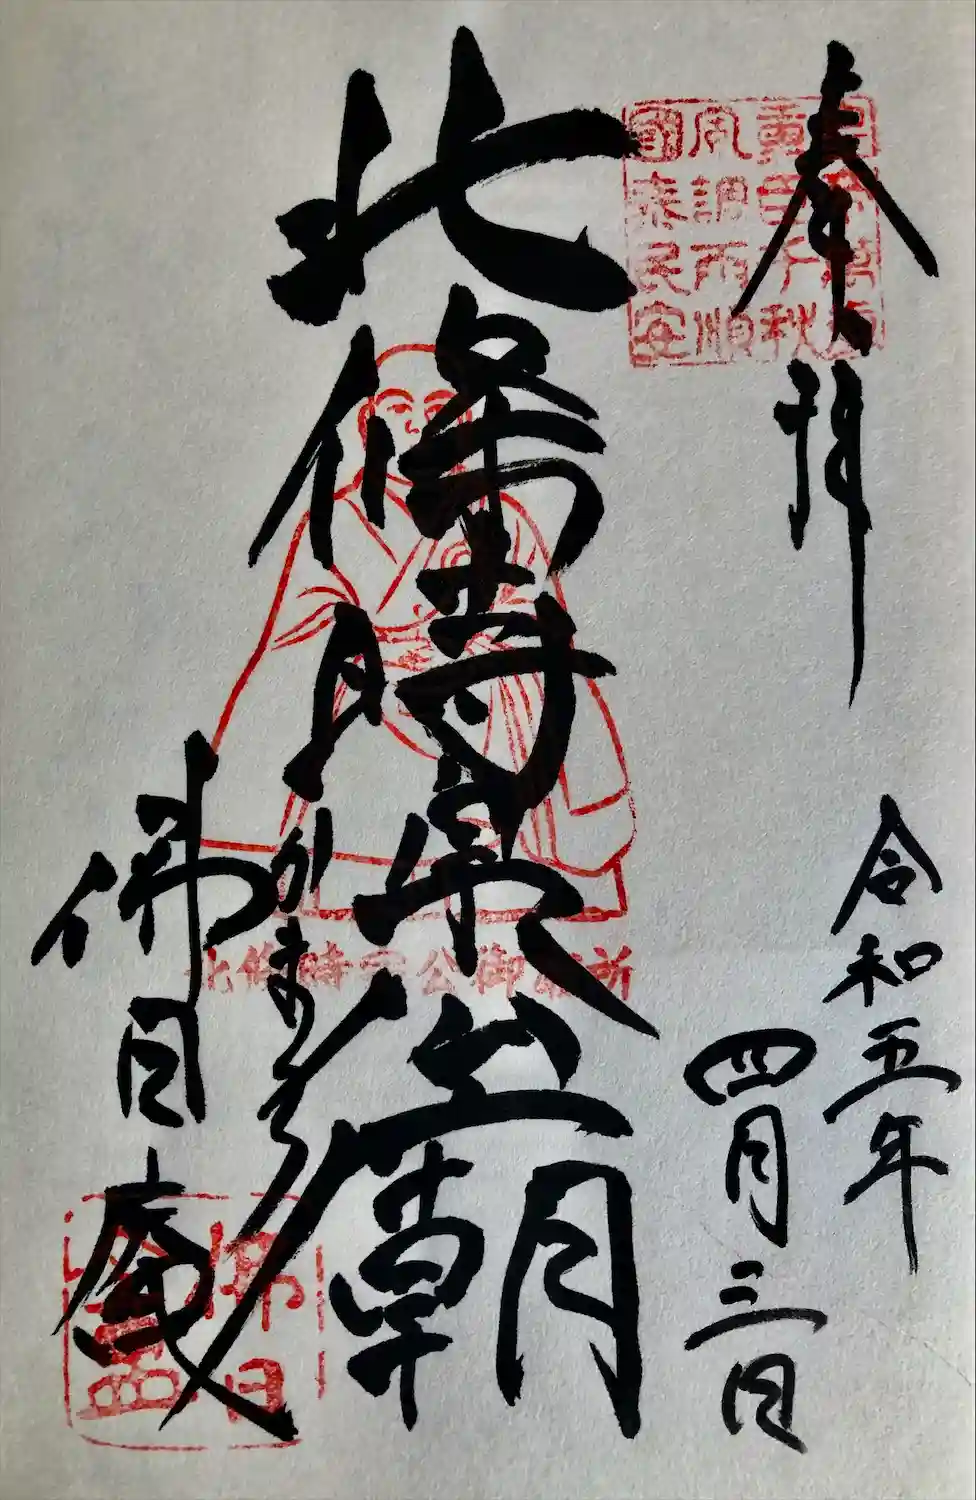 奉拝
皇帝萬歳
重臣千秋
風調雨順
國泰民安
令和五年
四月三日
北條時宗公廟
北條時宗公御廟所
かまくら
佛日庵